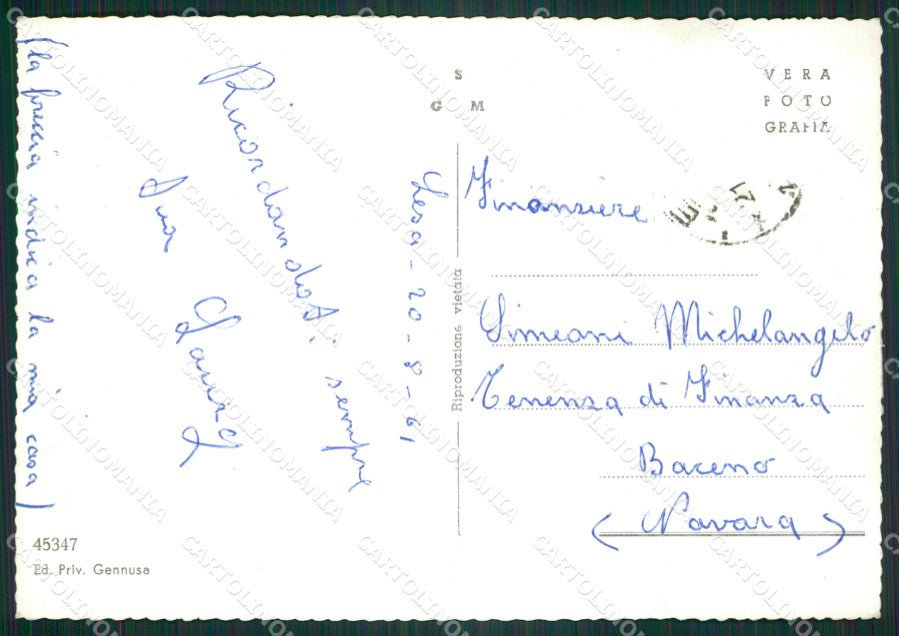 (la freccia indica la mia casa)
Ricordandoti sempre
tua
Laura
Lesa-20-8-61
S
G M
VERA
FOTO
GRAFIA
Finanziere
Simeoni Michelangelo
Tenenza di Finanza
Baceno
(Novara)
Riproduzione vietata
45347
Ed. Priv. Gennusa
CARTOLINOMANIA